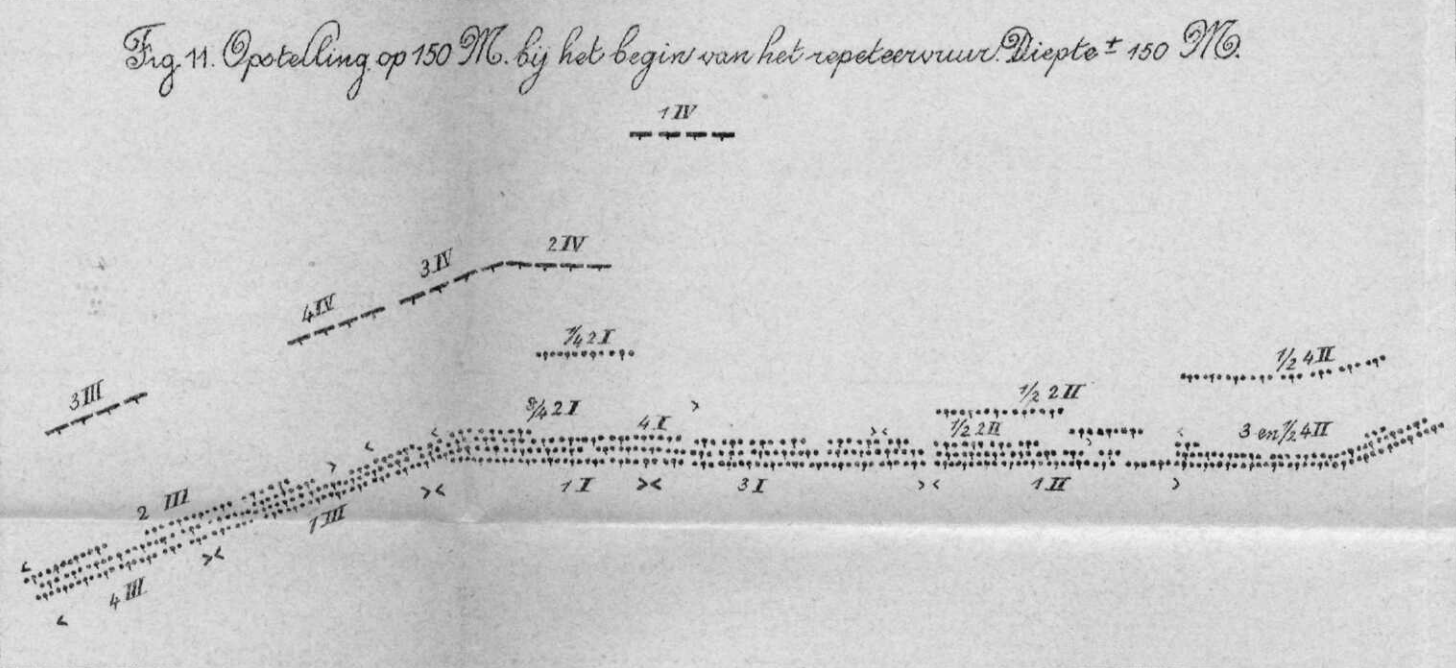 Fig. 11. Opstelling op 150 M. bij het begin van het repeteervuur. Diepte ± 150 M.
1 IV
2 IV
3 IV
4 IV
1/4 2 I
1/2 4 II
3 III
1/2 2 II
3/4 2 I
4 I
1/2 2 II
3 en 1/2 4 II
1 I
3 I
1 II
2 III
1 III
4 III